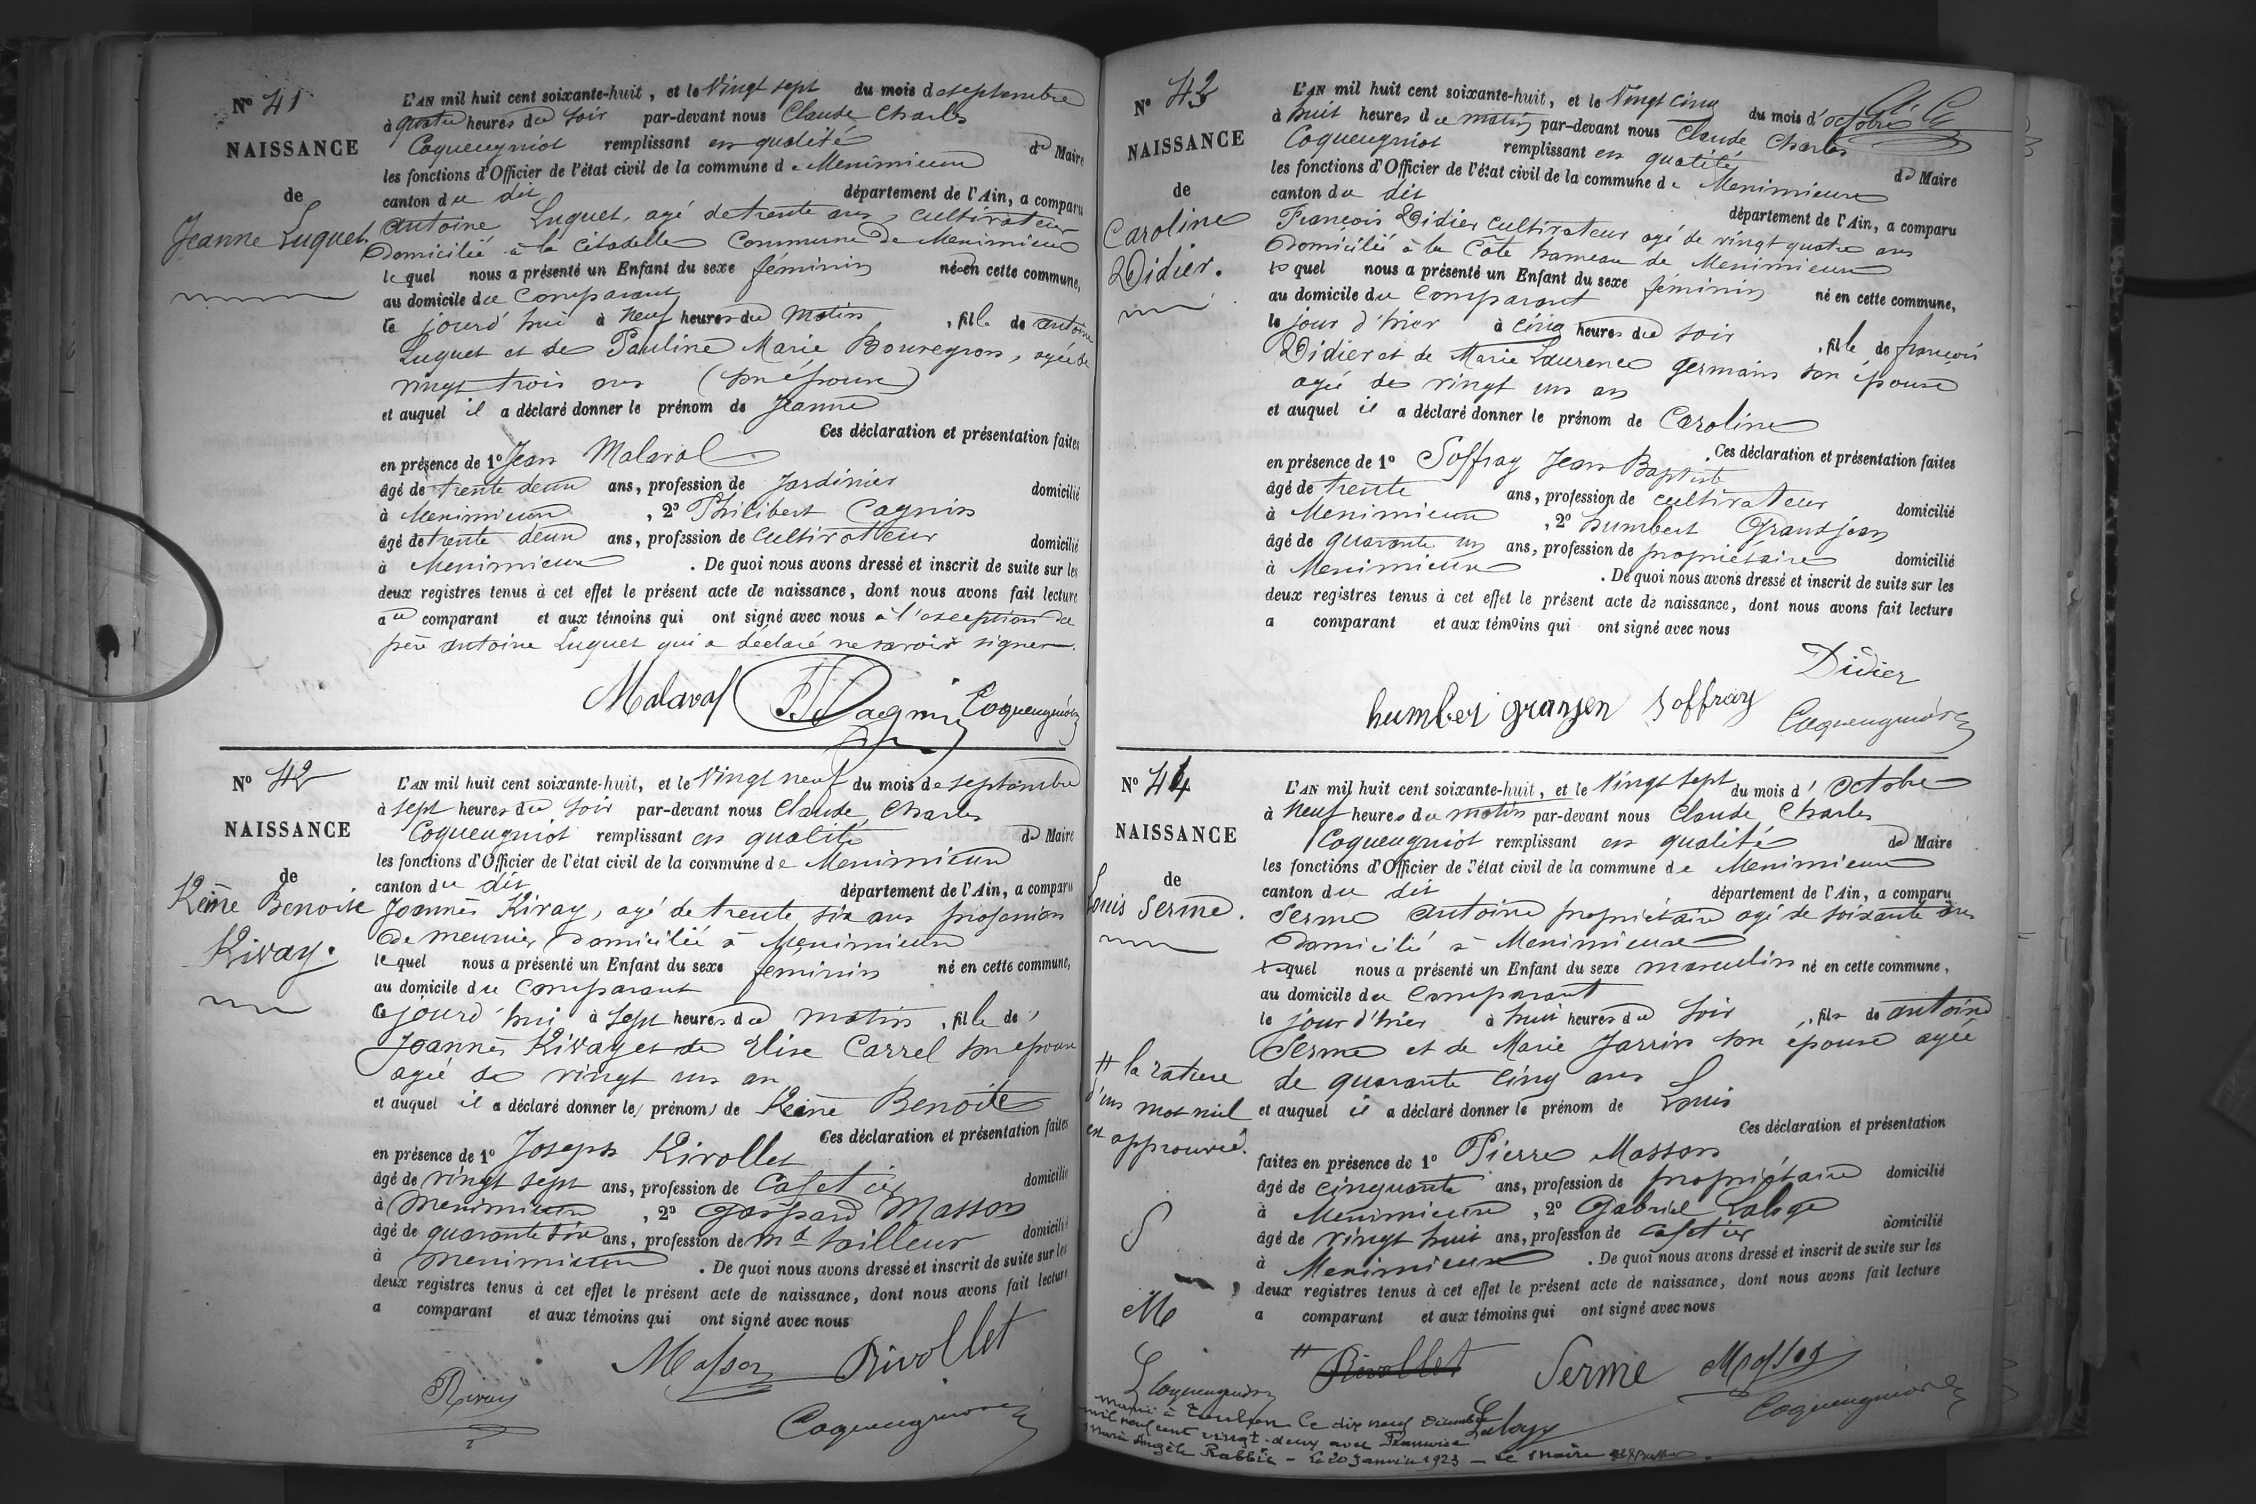 N° 41
NAISSANCE
de
Jeanne Luquet
L'AN mil huit cent soixante-huit, et le Vingt sept du mois de septembre
à quatre heures du soir par-devant nous Claude Charles
Coqueugniot remplissant en qualité de Maire
les fonctions d'Officier de l'état civil de la commune de Meximieux
canton du dit département de l'Ain, a comparu
antoine Luquet, agé de trente ans, cultivateur
Domicilié à la Citadelle Commune De Meximieux
le quel nous a présenté un Enfant du sexe féminin né en cette commune,
au domicile du Comparant
ce jourd'hui à neuf heures du matin, fille de antoine
Luquet et de Pauline Marie Bouvegron, agée de
vingt trois ans (son épouse)
et auquel il a déclaré donner le prénom de Jeanne
Ces déclaration et présentation faites
en présence de 1° Jean Malaval
âgé de trente deux ans, profession de Jardinier domicilié
à Meximieux, 2° Philibert Cagnin
âgé de trente deux ans, profession de Cultivateur domicilié
à Meximieux. De quoi nous avons dressé et inscrit de suite sur les
deux registres tenus à cet effet le présent acte de naissance, dont nous avons fait lecture
au comparant et aux témoins qui ont signé avec nous à l'exception du
père antoine Luquet qui a déclaré ne savoir signer.
Malaval Cagnin Coqueugniot
N° 42
NAISSANCE
de
Reine Benoite
Rivay.
L'AN mil huit cent soixante-huit, et le Vingt neuf du mois de septembre
à sept heures du soir par-devant nous Claude Charles
Coqueugniot remplissant en qualité de Maire
les fonctions d'Officier de l'état civil de la commune de Meximieux
canton du dit département de l'Ain, a comparu
Joannès Rivay, agé de trente six ans profession
De meunier Domicilié à Meximieux
le quel nous a présenté un Enfant du sexe féminin né en cette commune,
au domicile du Comparant
ce jourd'hui à sept heures du matin, fille de
Joannès Rivay et de Elise Carrel son épouse
agée de vingt un an
et auquel il a déclaré donner le prénom de Reine Benoite
Ces déclaration et présentation faites
en présence de 1° Joseph Rivollet
âgé de vingt sept ans, profession de Cafetier domicilié
à Meximieux, 2° Gaspard Masson
âgé de quarante six ans, profession de md tailleur domicilié
à Meximieux. De quoi nous avons dressé et inscrit de suite sur les
deux registres tenus à cet effet le présent acte de naissance, dont nous avons fait lecture
a comparant et aux témoins qui ont signé avec nous
Masson Rivollet
Rivay
Coqueugniot
N° 43
NAISSANCE
de
Caroline
Didier.
L'AN mil huit cent soixante-huit, et le Vingt cinq du mois d'octobre
à huit heures du matin par-devant nous Claude Charles
Coqueugniot remplissant en qualité de Maire
les fonctions d'Officier de l'état civil de la commune de Meximieux
canton du dit département de l'Ain, a comparu
François Didier cultivateur agé de vingt quatre ans
Domicilié à la Côte hameau de Meximieux
le quel nous a présenté un Enfant du sexe féminin né en cette commune,
au domicile du Comparant
le jour d'hier à cinq heures du soir, fille de françois
Didier et de Marie Laurence Germain son épouse
agée de vingt un an
et auquel il a déclaré donner le prénom de Caroline
Ces déclaration et présentation faites
en présence de 1° Soffray Jean Baptiste
âgé de trente ans, profession de cultivateur domicilié
à Meximieux, 2° humbert Grandjean
âgé de quarante un ans, profession de propriétaire domicilié
à Meximieux. De quoi nous avons dressé et inscrit de suite sur les
deux registres tenus à cet effet le présent acte de naissance, dont nous avons fait lecture
a comparant et aux témoins qui ont signé avec nous
Didier
humber granjen Soffray Coqueugniot
N° 44
NAISSANCE
de
Louis Serme.
L'AN mil huit cent soixante-huit, et le Vingt sept du mois d'Octobre
à neuf heures du matin par-devant nous Claude Charles
Coqueugniot remplissant en qualité de Maire
les fonctions d'Officier de l'état civil de la commune de Meximieux
canton du dit département de l'Ain, a comparu
Serme Antoine propriétaire agé de soixante ans
Domicilié à Meximieux
le quel nous a présenté un Enfant du sexe masculin né en cette commune,
au domicile du Comparant
le jour d'hier à huit heures du soir, fils de antoine
Serme et de Marie Jarrin son épouse agée
de quarante cinq ans
et auquel il a déclaré donner le prénom de Louis
Ces déclaration et présentation
faites en présence de 1° Pierre Masson
âgé de cinquante ans, profession de propriétaire domicilié
à Meximieux, 2° Gabriel Laloge
âgé de vingt huit ans, profession de cafetier domicilié
à Meximieux. De quoi nous avons dressé et inscrit de suite sur les
deux registres tenus à cet effet le présent acte de naissance, dont nous avons fait lecture
a comparant et aux témoins qui ont signé avec nous
# la rature
d'un mot nul
est approuvée.
S
M
L Coqueugniot
# Rivollet Serme Masson
Coqueugniot
Marié à Toulon le dix neuf Décembre
mil neuf cent vingt-deux avec Françoise
Marie Angèle Rabbia - Le 20 Janvier 1923 - Le Maire